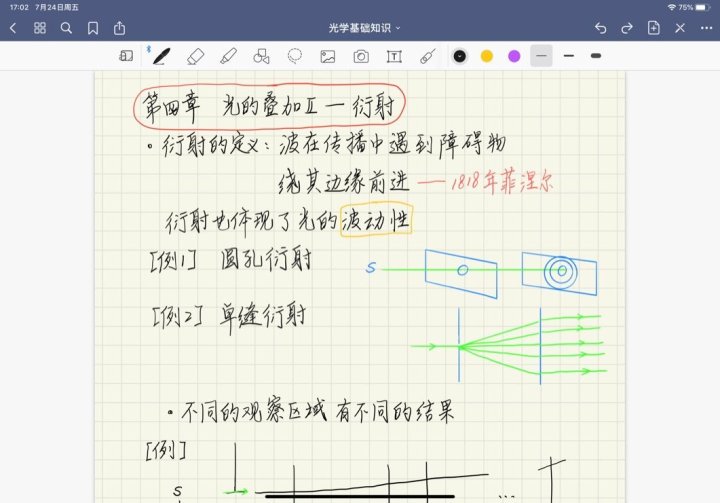 17:02 7月24日周五
75%
光学基础知识
第四章 光的叠加Ⅱ—衍射
·衍射的定义：波在传播中遇到障碍物
绕其边缘前进 ——1818年菲涅尔
衍射也体现了光的波动性
[例1] 圆孔衍射
S
[例2] 单缝衍射
·不同的观察区域有不同的结果
[例]
S
...